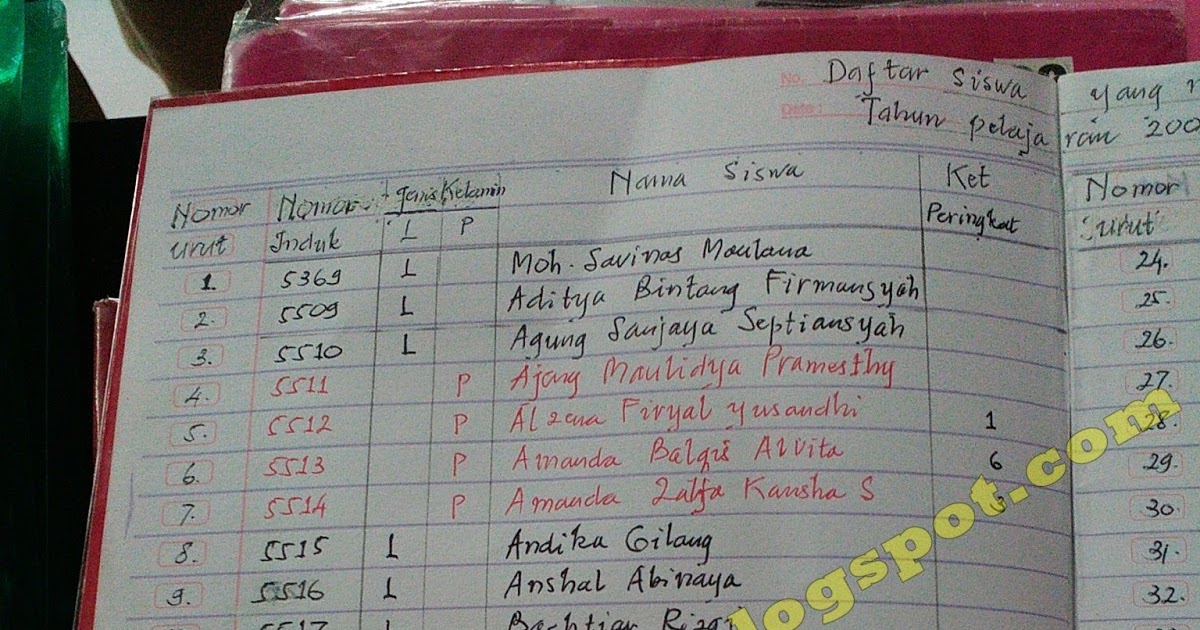 No. Daftar Siswa yang
Date: Tahun pelajaran 200
Nomor Nomor Jenis Kelamin Nama Siswa Ket Nomor
urut Induk L P Peringkat urut
1. 5369 L Moh. Savinas Maulana 24.
2. 5509 L Aditya Bintang Firmansyah 25.
3. 5510 L Agung Sanjaya Septiansyah 26.
4. 5511 P Ajeng Maulidya Pramesthy 27.
5. 5512 P Alzena Firyal yusandhi 1 28.
6. 5513 P Amanda Balqis Alvita 6 29.
7. 5514 P Amanda Zalfa Kansha S 3 30.
8. 5515 L Andika Gilang 31.
9. 5516 L Anshal Abinaya 32.
5517 L Bachtiar Rizqi
logspot.com